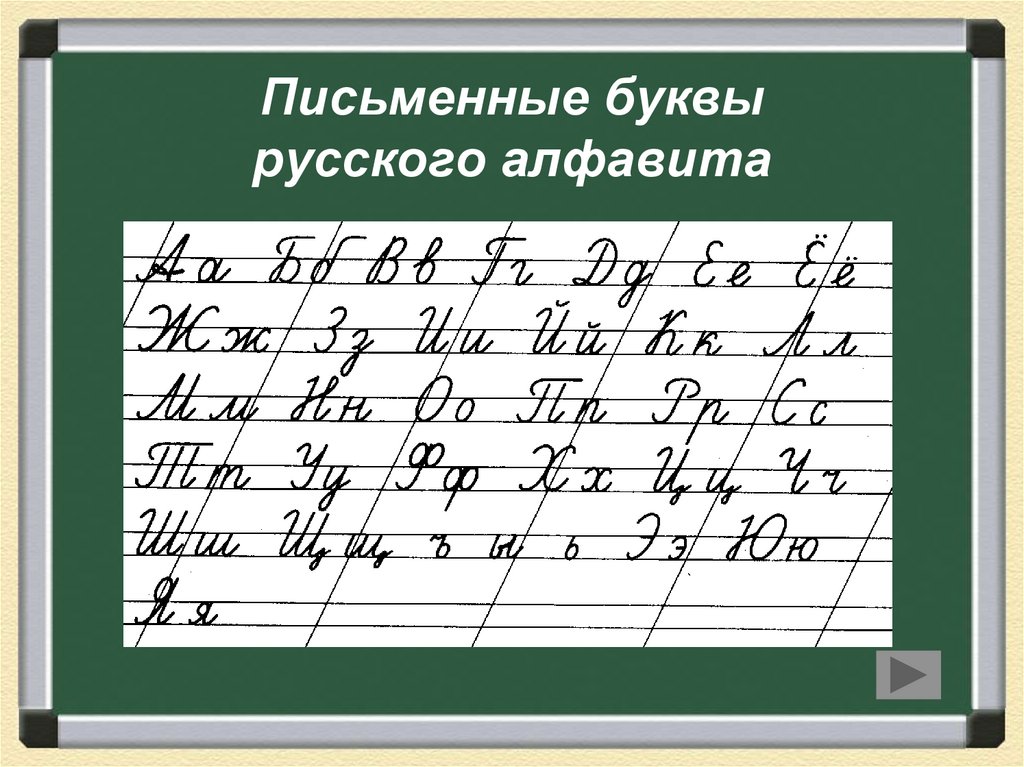 Письменные буквы
русского алфавита
Аа Бб Вв Гг Дд Ее Ёё
Жж Зз Ии Йй Кк Лл
Мм Нн Оо Пп Рр Сс
Тт Уу Фф Хх Цц Чч
Шш Щщ ъ ы ь Ээ Юю
Яя